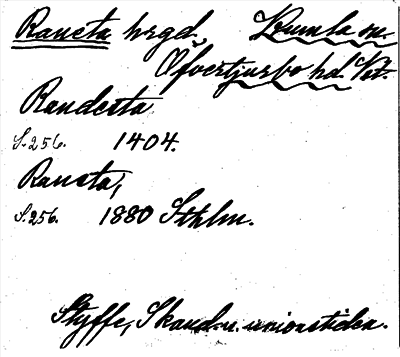 Ransta hrgd., Kumla sn.
Öfvertjurbo hd. Vst.
Randesta
S. 256. 1404.
Ransta,
S. 256. 1880 Sthlm.
Styffe, Skand. u. unionstiden.